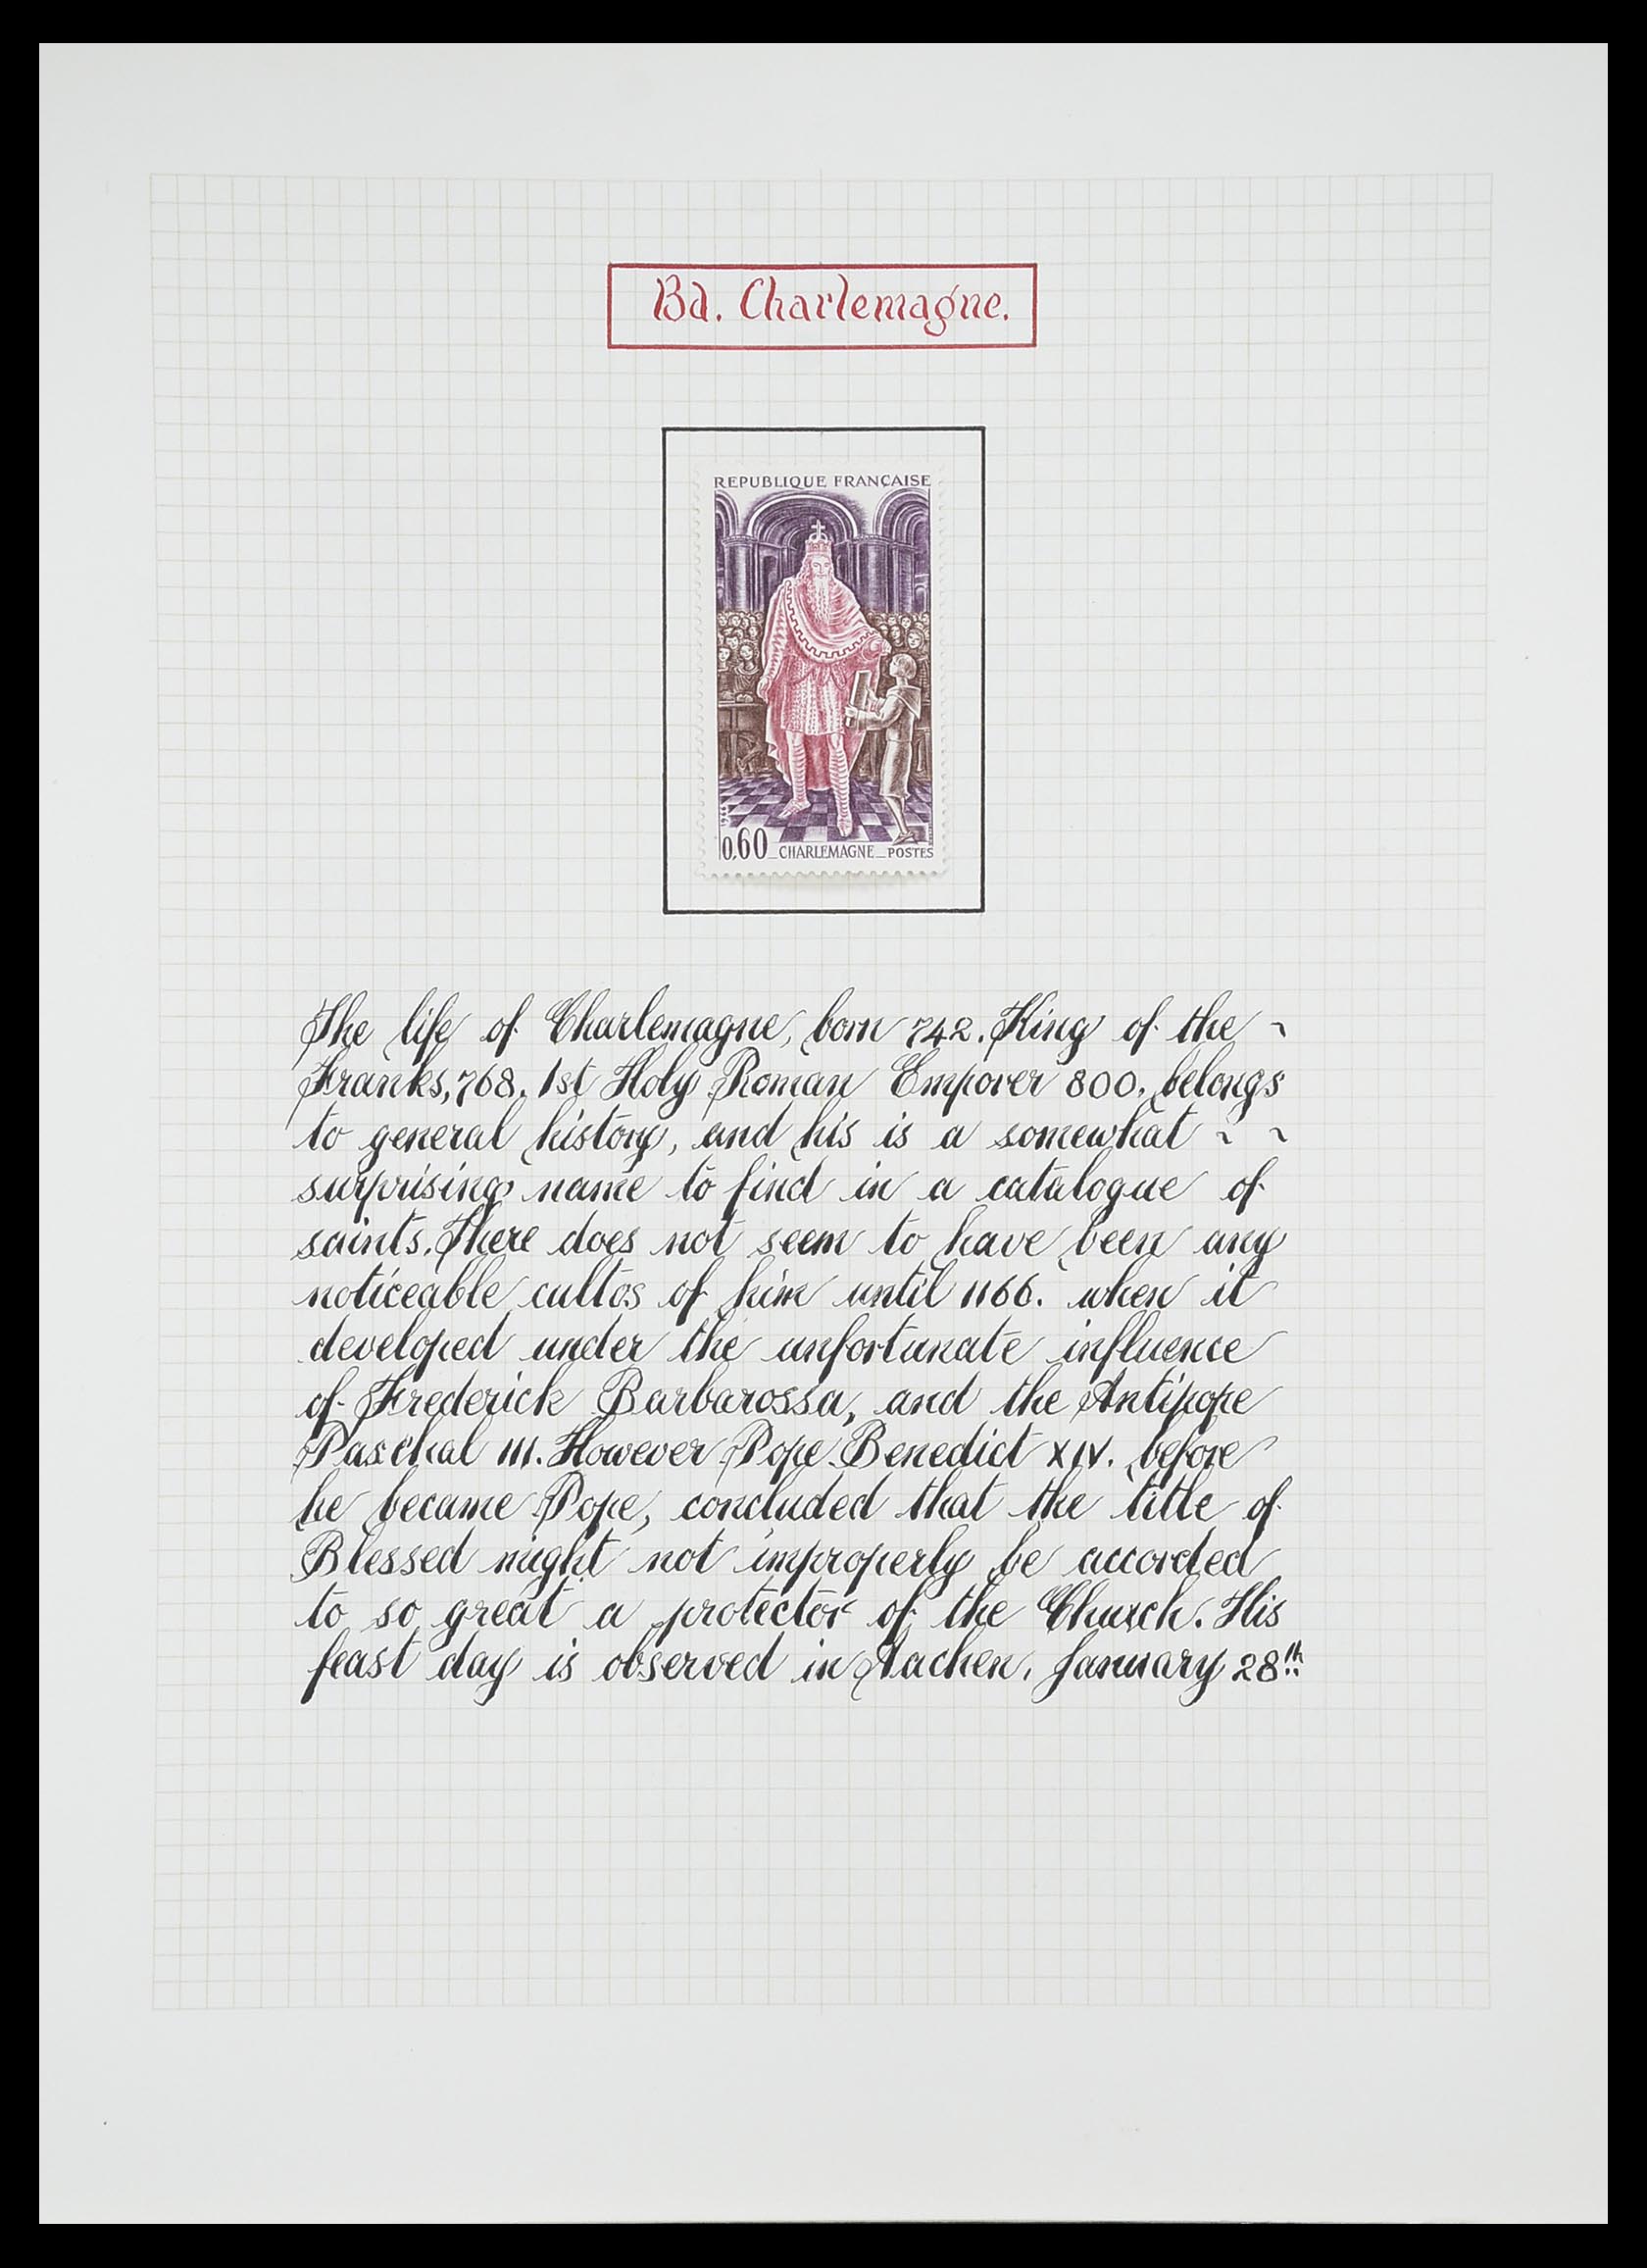 Bd. Charlemagne.
REPUBLIQUE FRANÇAISE
0,60 _ CHARLEMAGNE _ POSTES
The life of Charlemagne, born 742. King of the ~
Franks, 768. 1st Holy Roman Emporer 800. belongs
to general history, and his is a somewhat ~ ~
surprising name to find in a catalogue of
saints. There does not seem to have been any
noticeable cultos of him until 1166. when it
developed under the unfortunate influence
of Frederick Barbarossa, and the Antipope
Paschal III. However Pope Benedict XIV. before
he became Pope, concluded that the title of
Blessed might not improperly be accorded
to so great a protector of the Church. His
feast day is observed in Aachen. January 28th